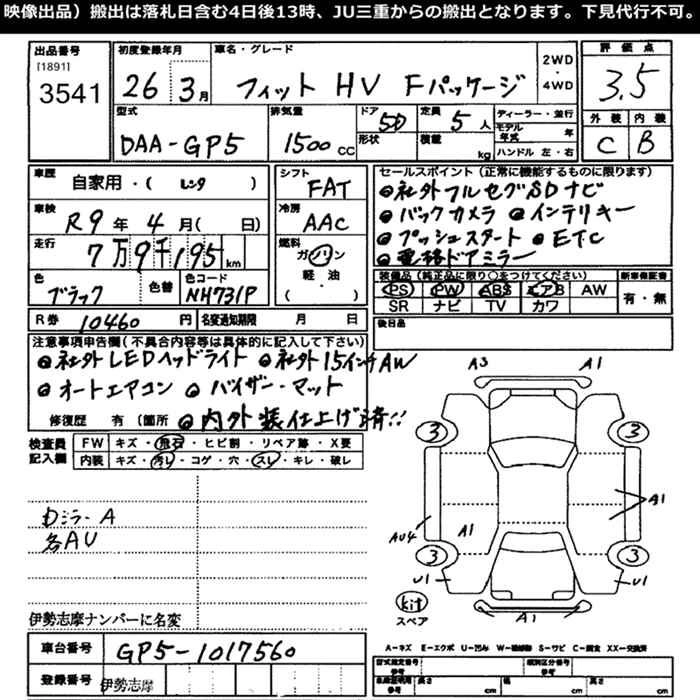 映像出品）搬出は落札日含む4日後13時、JU三重からの搬出となります。下見代行不可。
出品番号
[1891]
3541
初度登録年月
26 3月
車名・グレード
フィット HV Fパッケージ
2WD
・
4WD
評価点
3.5
外装 内装
C B
型式
DAA-GP5
排気量
1500 cc
ドア
5D
形状
定員
5人
積載
kg
ディーラー・並行
モデル年式 年
ハンドル 左・右
車歴
自家用・( レンタ )
車検
R9年 4月( 日)
走行
7万9千195km
色
ブラック
色替
色コード
NH731P
シフト
FAT
冷房
AAC
燃料
ガソリン
軽・油
( )
セールスポイント（正常に機能するものに限ります）
社外フルセグSDナビ
バックカメラ インテリキー
プッシュスタート ETC
電格ドアミラー
装備品（純正品に限り○をつけてください）
PS PW ABS エアB AW
SR ナビ TV カワ
新車保証書
有・無
R券 10460 円
名変通知期限 月 日
後日品
注意事項申告欄（不具合内容等は具体的に記入して下さい）
社外LEDヘッドライト 社外15インチAW
オートエアコン バイザー・マット
修復歴 有（箇所 内外装仕上げ済!!
検査員記入欄
FW キズ・飛石・ヒビ割・リペア跡・X要
内装 キズ・汚レ・コゲ・穴・スレ・キレ・破レ
Dミラー A
各AU
伊勢志摩ナンバーに名変
車台番号
GP5-1017560
登録番号
伊勢志摩
A3 A1
3 3
A1
AU4 A1
3 3
U1 U1
kit
スペア
A1
A－キズ E－エクボ U－凹み W－補修跡 S－サビ C－腐食 XX－交換済
型式指定番号
参考
類別区分番号
参考
車台証明用
参考
長さ cm
幅 cm
高さ cm